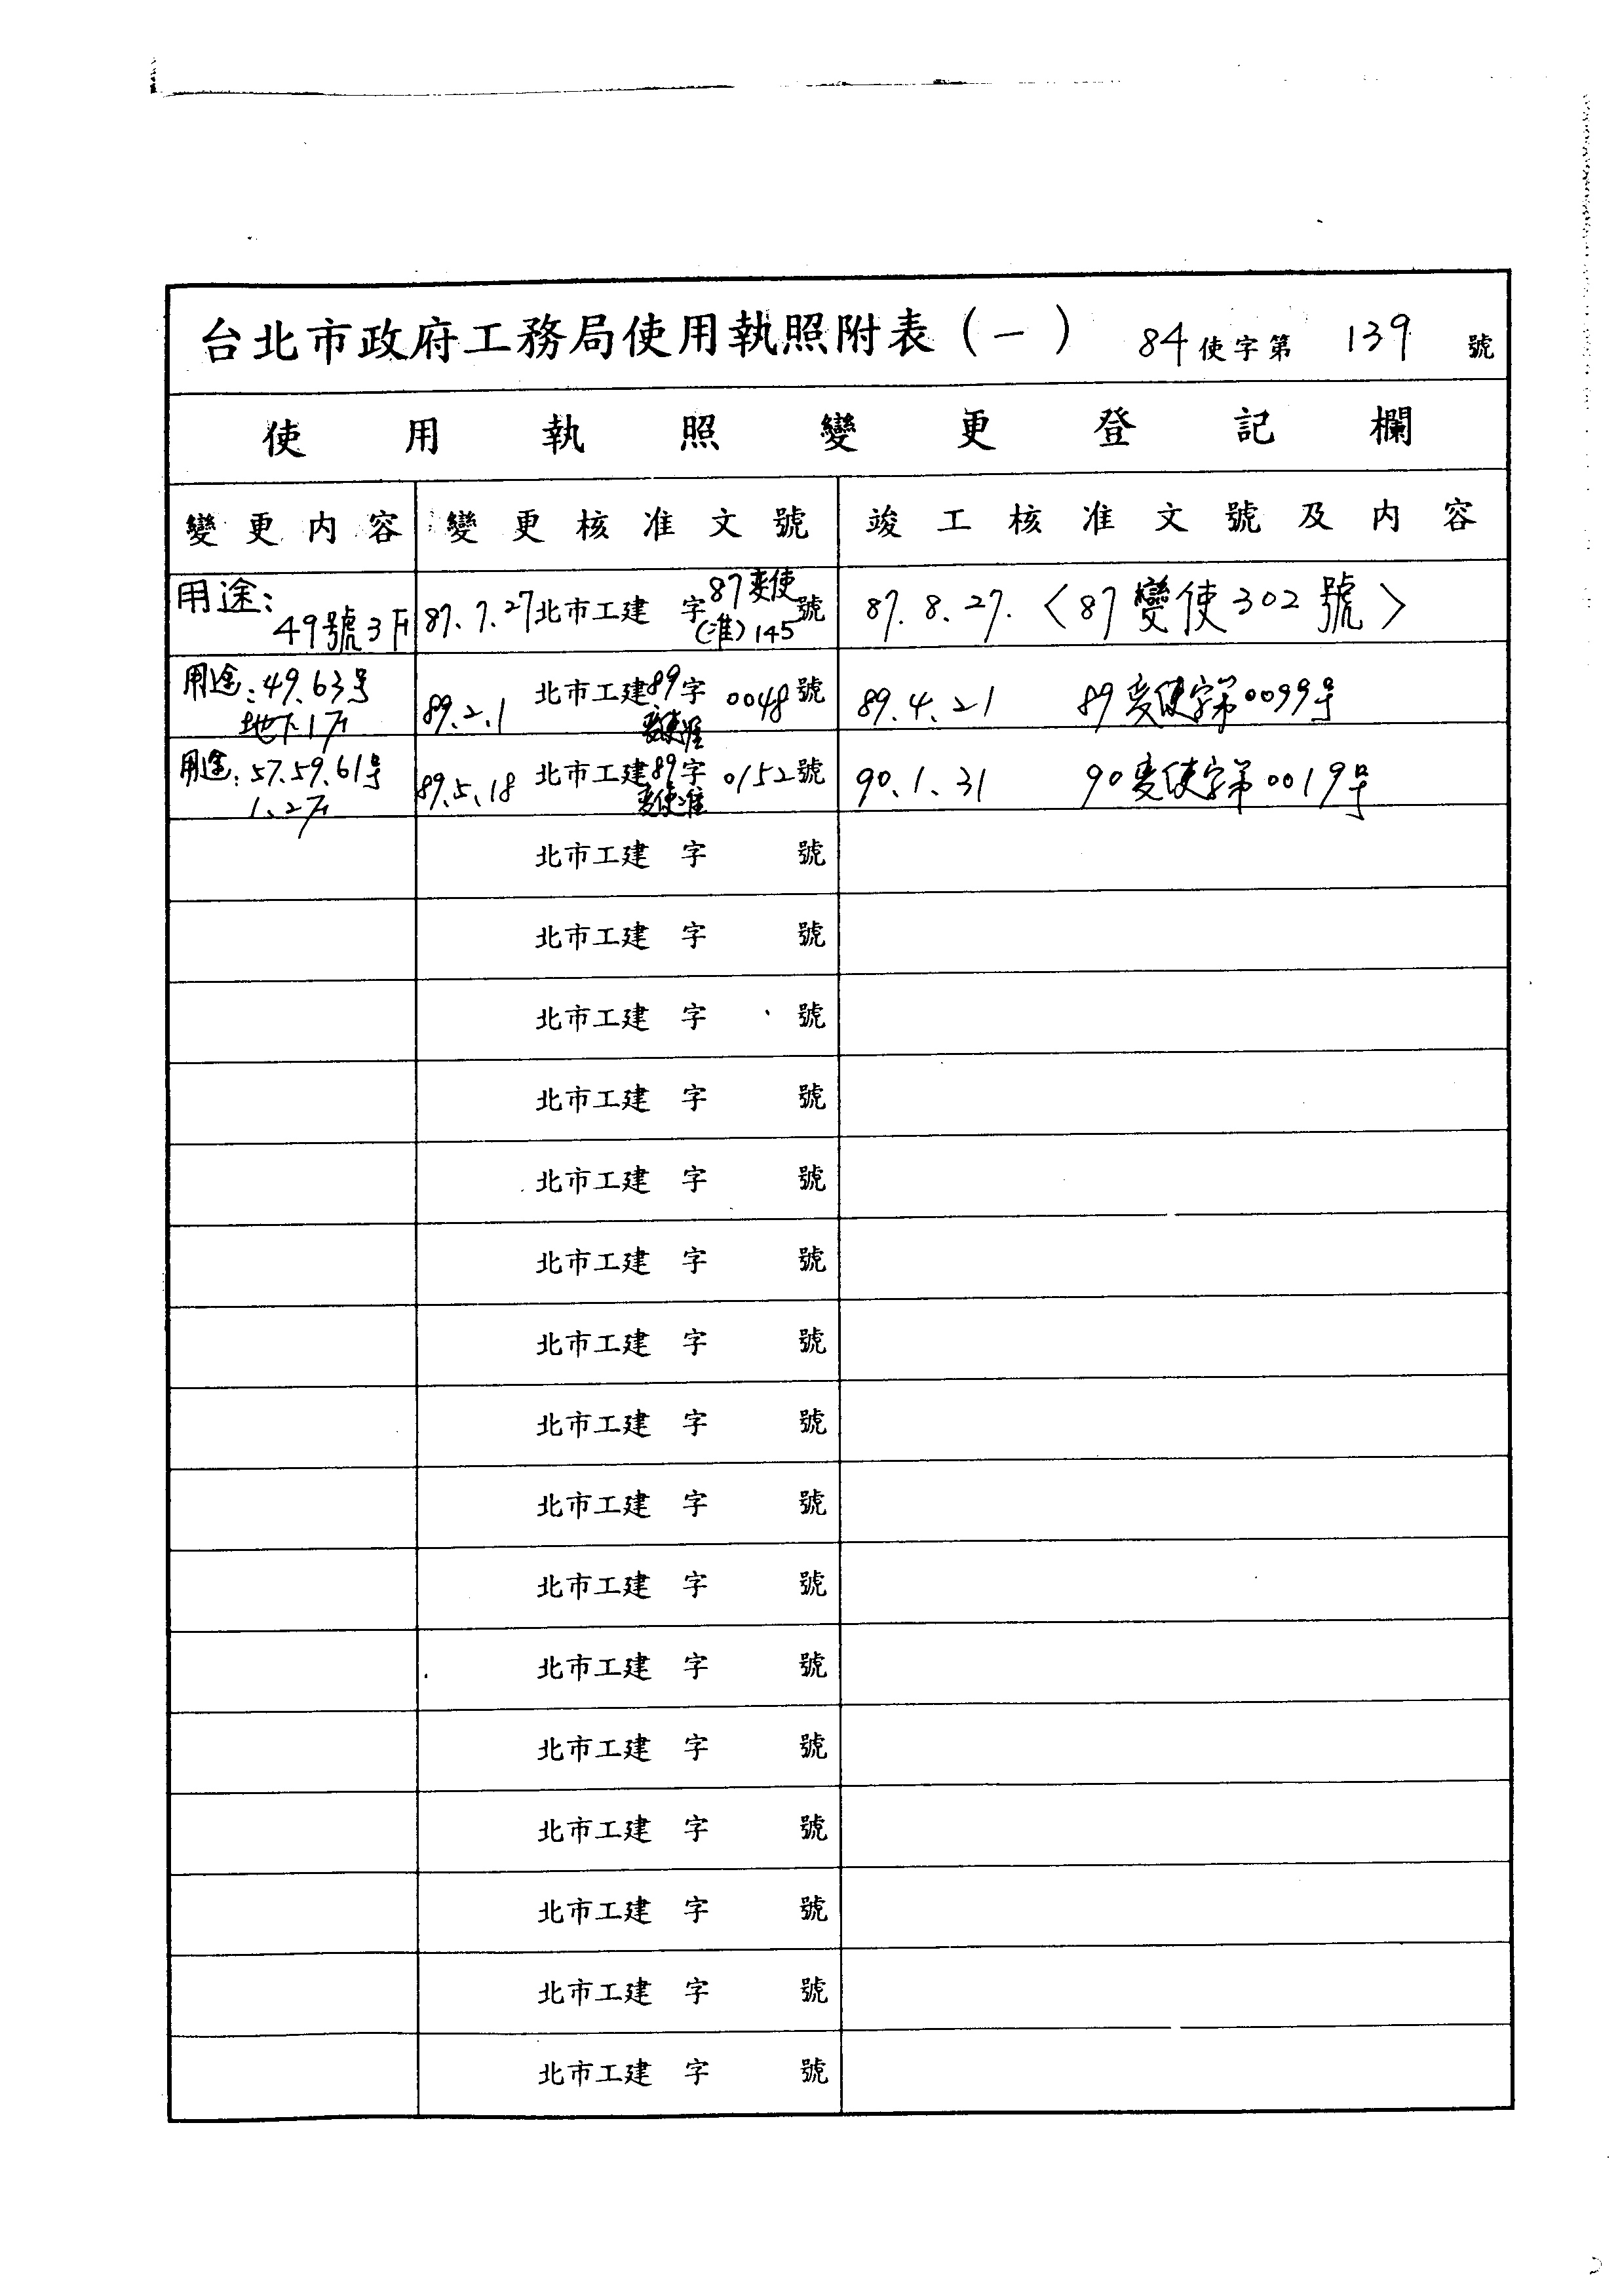 台北市政府工務局使用執照附表（一） 84使字第 139 號
使用執照變更登記欄
變更內容 變更核准文號 竣工核准文號及內容
用途：
49號3F 87.7.27 北市工建 字 87变使(准)145 號 87.8.27.〈87變使302號〉
用途：49.63号
地下1F 89.2.1 北市工建 89字变使准 0048 號 89.4.21 89变使字第0099号
用途：57.59.61号
1、2F 89.5.18 北市工建 89字变使准 0152 號 90.1.31 90变使字第0019号
北市工建 字 號
北市工建 字 號
北市工建 字 號
北市工建 字 號
北市工建 字 號
北市工建 字 號
北市工建 字 號
北市工建 字 號
北市工建 字 號
北市工建 字 號
北市工建 字 號
北市工建 字 號
北市工建 字 號
北市工建 字 號
北市工建 字 號
北市工建 字 號